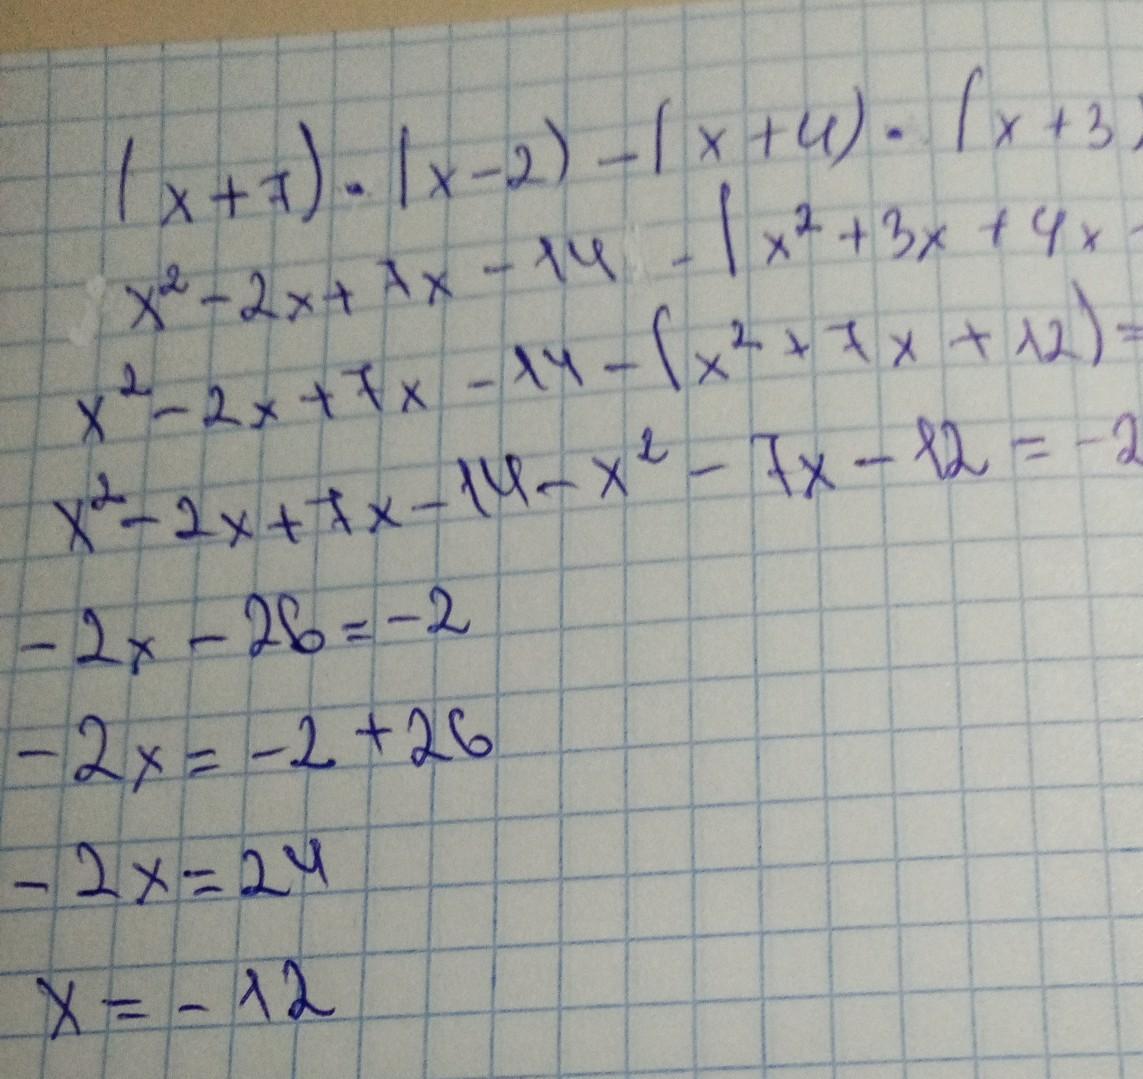 (x+7)·(x-2)-(x+4)·(x+3)
x²-2x+7x-14-(x²+3x+4x
x²-2x+7x-14-(x²+7x+12)=
x²-2x+7x-14-x²-7x-12=-2
-2x-26=-2
-2x=-2+26
-2x=24
x=-12